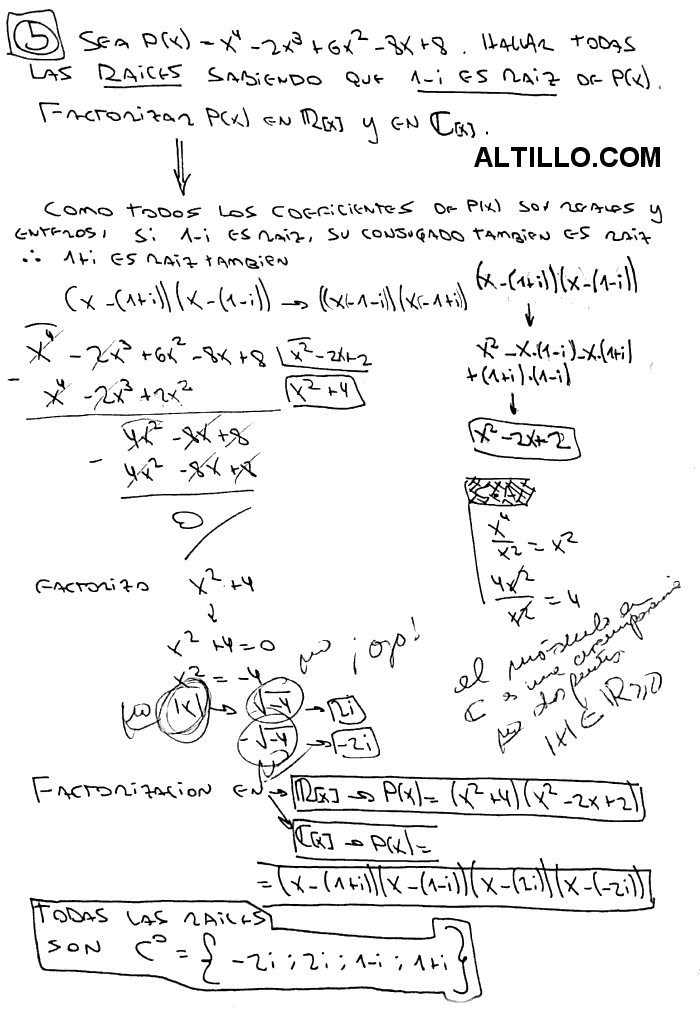 5 SEA P(x) = x⁴ - 2x³ + 6x² - 8x + 8. HALLAR TODAS
LAS RAICES SABIENDO QUE 1-i ES RAIZ DE P(x).
FACTORIZAR P(x) EN ℝ[x] Y EN ℂ[x].
ALTILLO.COM
COMO TODOS LOS COEFICIENTES DE P(x) SON REALES Y
ENTEROS, SI 1-i ES RAIZ, SU CONJUGADO TAMBIEN ES RAIZ
∴ 1+i ES RAIZ TAMBIEN
(x-(1+i))(x-(1-i)) → ((x-1-i)(x-1+i)
x⁴ - 2x³ + 6x² - 8x + 8 | x² - 2x + 2
- x⁴ - 2x³ + 2x² x² + 4
4x² - 8x + 8
- 4x² - 8x + 8
0
(x-(1+i))(x-(1-i))
↓
x² - x.(1-i) - x.(1+i)
+ (1+i).(1-i)
↓
x² - 2x + 2
x⁴/x² = x²
4x²/x² = 4
FACTORIZO x² + 4
↓
x² + 4 = 0
x² = -4
no ¡ojo!
no |x| → √-4 → 2i
-√-4 → -2i
el módulo en
ℂ es una circunferencia
no dos puntos
|x| ∈ ℝ ≥ 0
FACTORIZACION EN → ℝ[x] → P(x) = (x²+4)(x²-2x+2)
ℂ[x] → P(x) =
= (x-(1+i))(x-(1-i))(x-(2i))(x-(-2i))
TODAS LAS RAICES
SON C⁰ = { -2i ; 2i ; 1-i ; 1+i }